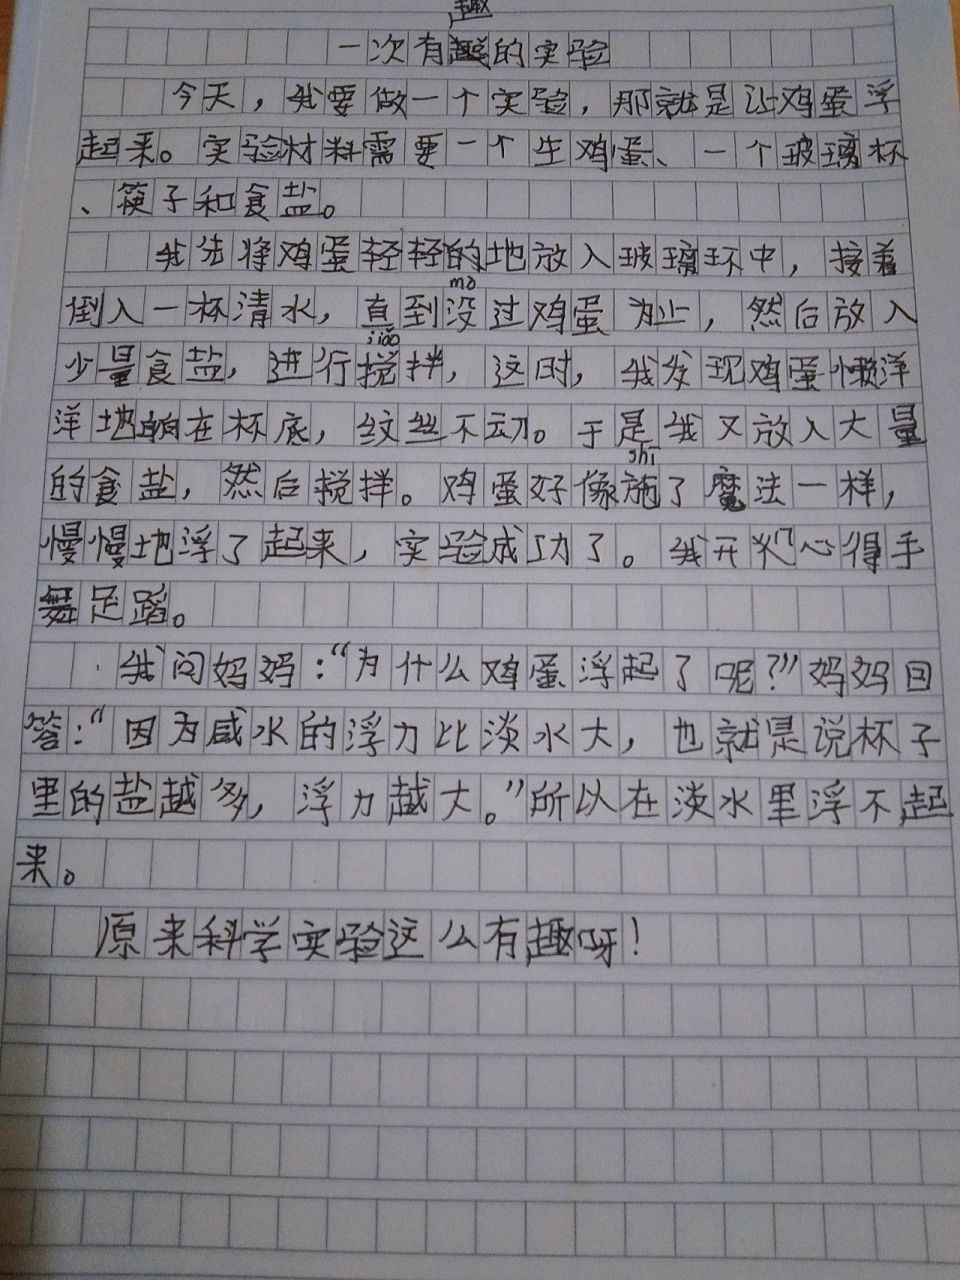 趣
一次有趣的实验
今天，我要做一个实验，那就是让鸡蛋浮
起来。实验材料需要一个生鸡蛋、一个玻璃杯
、筷子和食盐。
我先将鸡蛋轻轻的地放入玻璃环中，接着
倒入一杯清水，直到没过鸡蛋为止，然后放入
mo
少量食盐，进行搅拌，这时，我发现鸡蛋懒洋
jiǎo
洋地躺在杯底，纹丝不动。于是我又放入大量
的食盐，然后搅拌。鸡蛋好像施了魔法一样，
shī
慢慢地浮了起来，实验成功了。我开心得手
舞足蹈。
我问妈妈：“为什么鸡蛋浮起了呢？”妈妈回
答：“因为咸水的浮力比淡水大，也就是说杯子
里的盐越多，浮力越大。”所以在淡水里浮不起
来。
原来科学实验这么有趣呀！